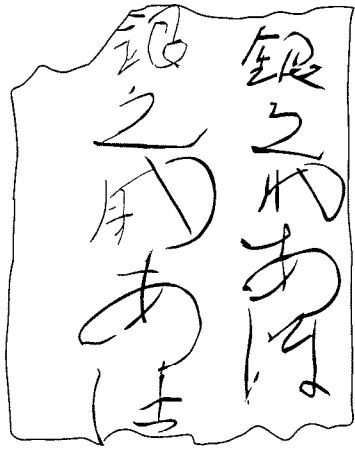 銀之助あほ
銀之助あほ